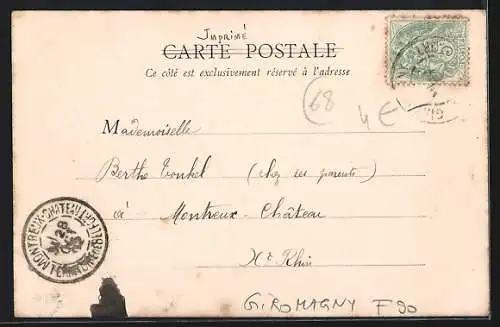 Imprimé
CARTE POSTALE
Ce côté est exclusivement réservé à l'adresse
68
4 E
Mademoiselle
Berthe Tonhel (chez ses parents)
à Montreux-Château
Ht Rhin
MONTREUX-CHATEAU
GIROMAGNY F90